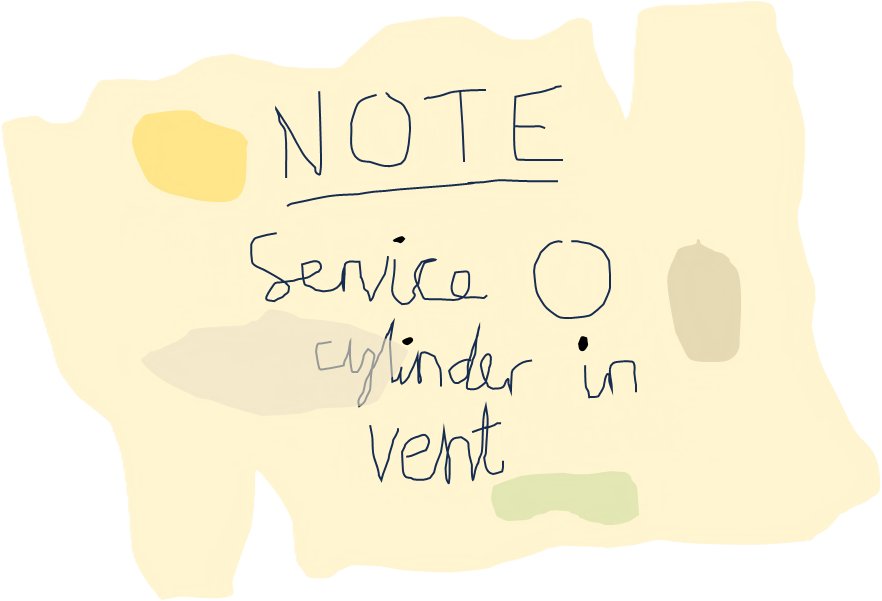 NOTE
Service O
cylinder in
vent